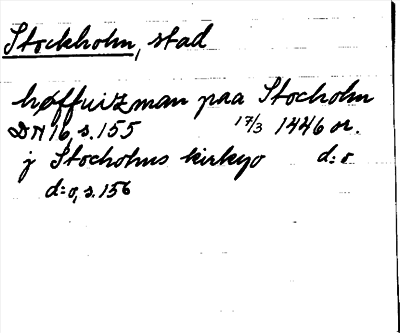 Stockholm, stad
høffuizman paa Stocholm
DN 16, s. 155 17/3 1446 or.
j Stocholms kirkyo d:o
d:o, s. 156